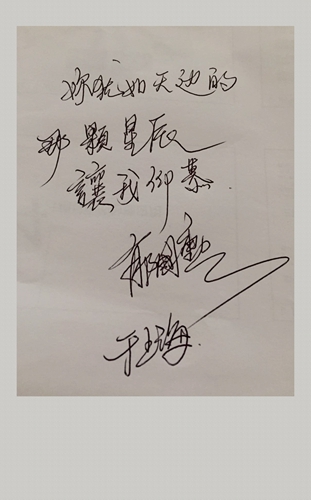 你犹如天边的
那颗星辰
讓我仰慕.
于海